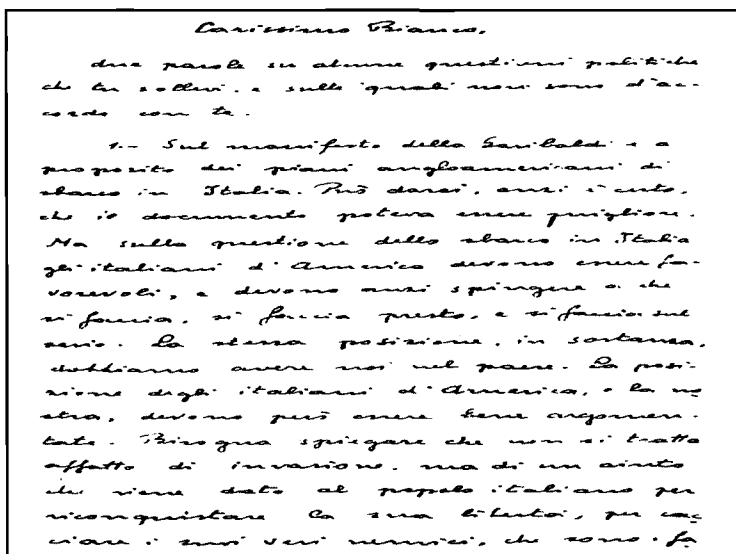 Carissimo Bianco,
due parole su alcune questioni politiche
che tu sollevi, e sulle quali non sono d'ac-
cordo con te.
1.- Sul manifesto della Garibaldi e a
proposito dei piani angloamericani di
sbarco in Italia. Può darsi, anzi è certo,
che io documento poteva essere migliore.
Ma sulla questione dello sbarco in Italia
gli italiani d'America devono essere fa-
vorevoli, e devono anzi spingere a che
si faccia, si faccia presto, e si faccia sul
serio. La stessa posizione, in sostanza,
dobbiamo avere noi nel paese. La posi-
zione degli italiani d'America, e la no
stra, devono però essere bene argomen-
tate. Bisogna spiegare che non si tratta
affatto di invasione, ma di un aiuto
che viene dato al popolo italiano per
riconquistare la sua libertà, per cac-
ciare i suoi veri nemici, che sono i fa